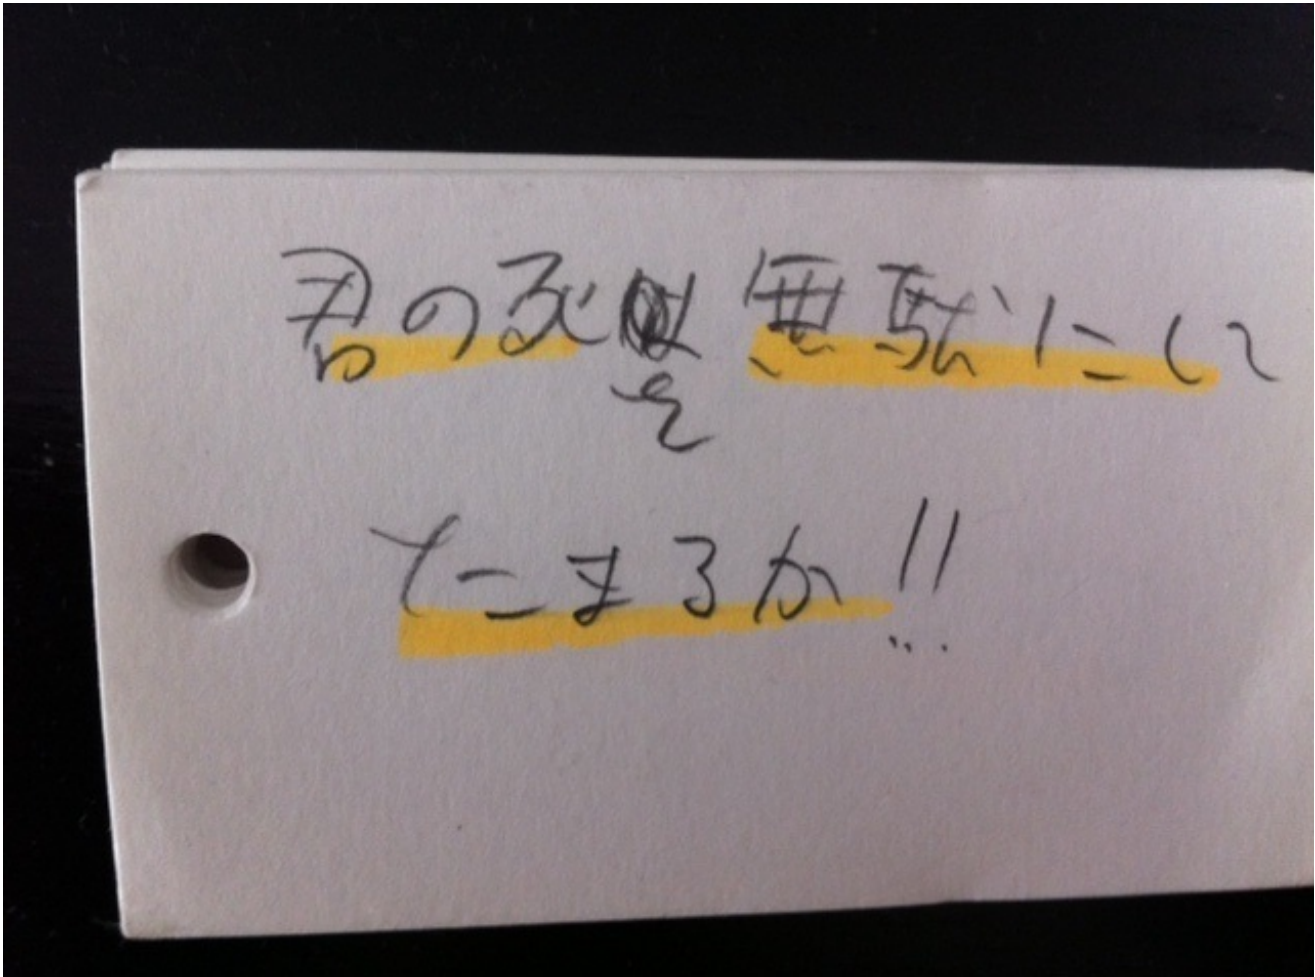 君の死を無駄にして
たまるか!!